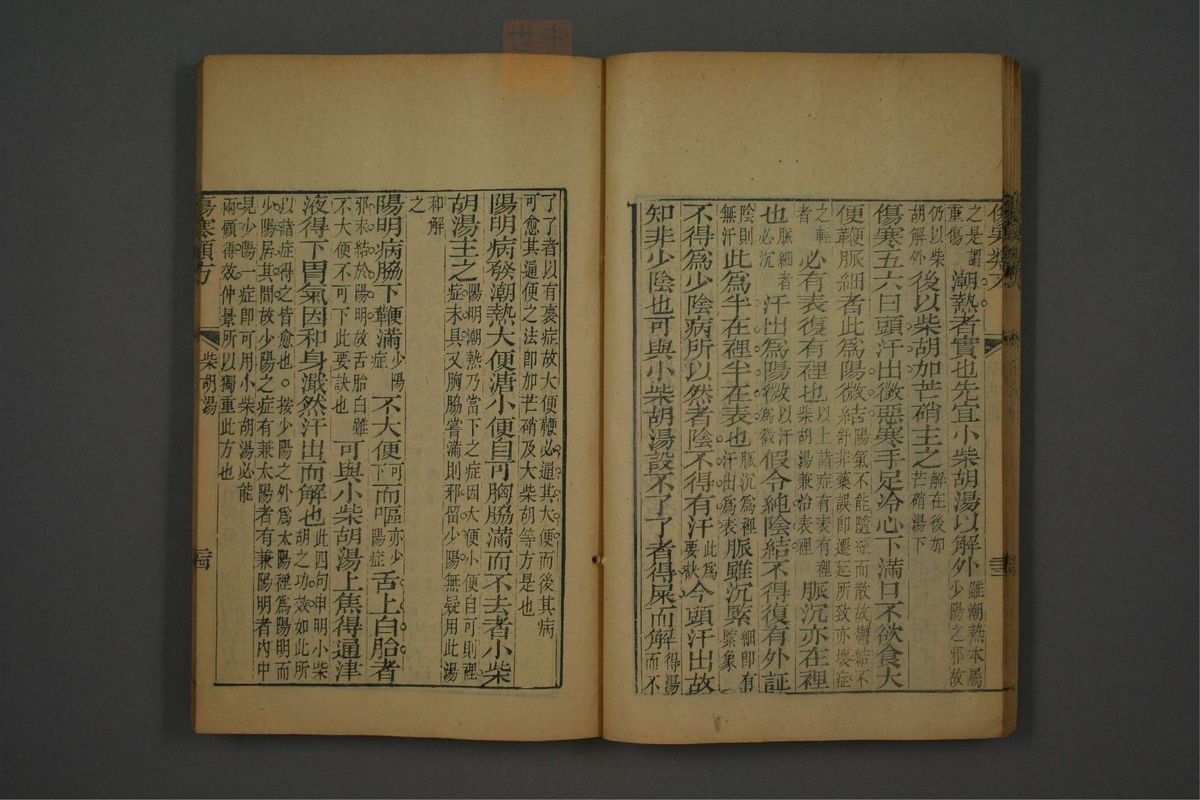 之是謂重傷潮熱者實也先宜小柴胡湯以解外雖潮熱本屬少陽之邪故
仍以柴胡解外後以柴胡加芒硝主之解在後加芒硝湯下
傷寒五六日頭汗出微惡寒手足冷心下滿口不欲食大
便鞕脈細者此爲陽微結陽氣不能隨經而散故鬱結不舒非藥誤卽遷延所致亦壞症
之輕者必有表復有裡也以上諸症有表有裡柴胡湯兼治表裡脈沉亦在裡
也脈細者必沉汗出爲陽微以汗爲微假令純陰結不得復有外証
陰則無汗此爲半在裡半在表也脈沉爲裡汗出爲表脈雖沉緊細卽有緊象
不得爲少陰病所以然者陰不得有汗此爲要訣今頭汗出故
知非少陰也可與小柴胡湯設不了了者得屎而解得湯而不
了了者以有裏症故大便鞕必通其大便而後其病可愈其通便之法卽加芒硝及大柴胡等方是也
陽明病發潮熱大便溏小便自可胸脇滿而不去者小柴
胡湯主之陽明潮熱乃當下之症因大便小便自可則裡症未具又胸脇嘗滿則邪留少陽無疑用此湯
和解之
陽明病脇下鞕滿少陽症不大便可下而嘔亦少陽症舌上白胎者
邪未結於陽明故舌胎白雖不大便不可下此要訣也可與小柴胡湯上焦得通津
液得下胃氣因和身濈然汗出而解也此四句申明小柴胡之功效如此所
以諸症得之皆愈也。按少陽之外爲太陽裡爲陽明而少陽居其間故少陽之症有兼太陽者有兼陽明者內中
見少陽一症卽可用小柴胡湯必能兩顧得效仲景所以獨重此方也
傷寒類方
柴胡湯